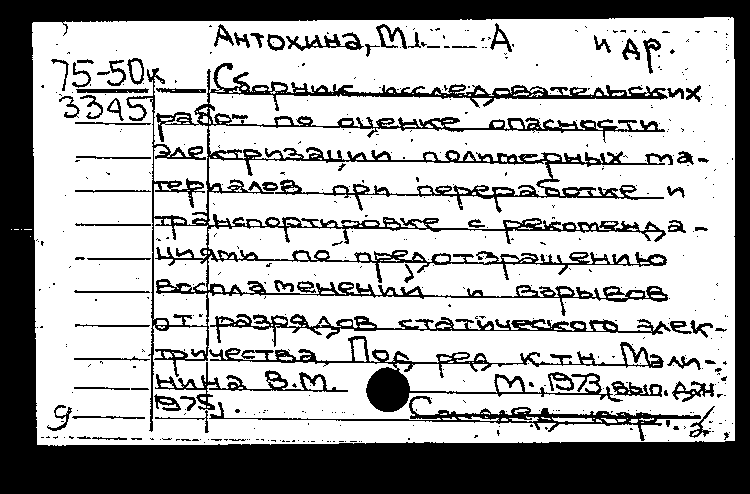 Антохина, М. А и др.
75-50к Сборник исследовательских
3345 работ по оценке опасности
электризации полимерных ма-
териалов при переработке и
транспортировке с рекоменда-
циями по предотвращению
воспламенений и взрывов
от разрядов статического элек-
тричества. Под ред. к.т.н. Мали-
нина В.М. М., 1973, вып. дан.
1975,.
g След. кар.